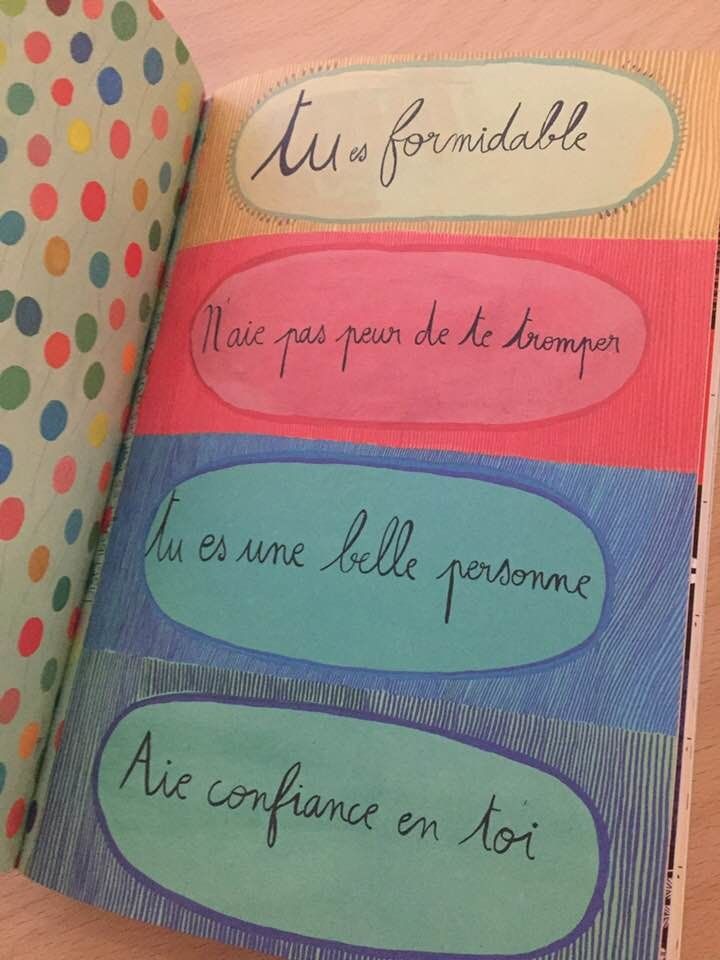 tu es formidable
N'aie pas peur de te tromper
tu es une belle personne
Aie confiance en toi